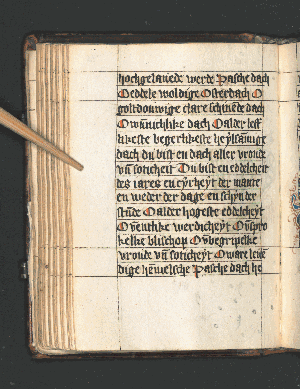 hochgelauede werde Pasche dach
O eddele woldige Osterdach O
goltdouwige clare schinede dach
O wūnichlike dach O alder leff
likeste begerlikeste heylsamige
dach du bist en dach aller vroude
vn̄ soticheit Du bist en eddelcheit
des iares en cyrheyt der mante
en weder der dage en schyn der
stūde O alder hogeste eddelcheyt
O werdicheyt O
kelke blischop O begripelke
vroude vn̄ soticheyt O ware leuē
dige hēmelsche Pasche dach he